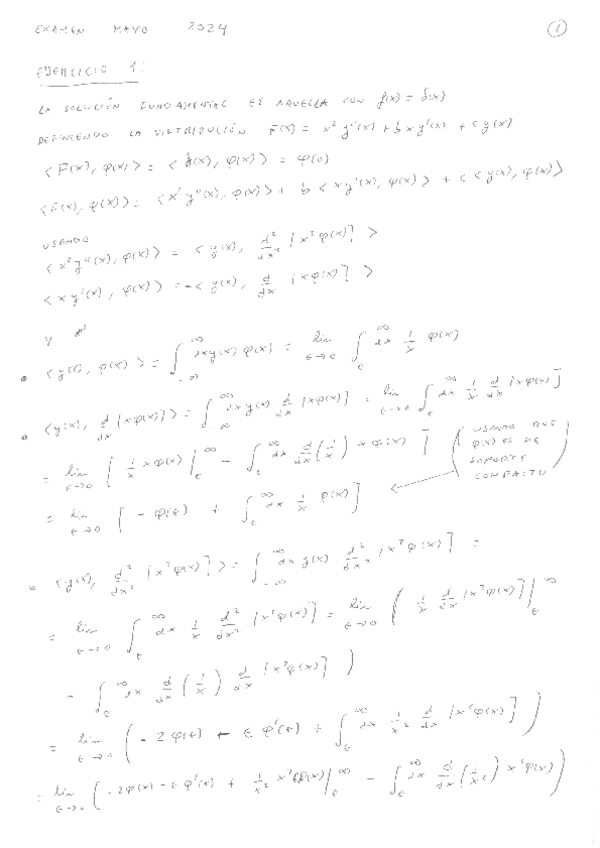 EXAMEN MAYO 2024 ①
EJERCICIO 1:
LA SOLUCIÓN FUNDAMENTAL ES AQUELLA CON f(x) = δ(x)
DEFINIENDO LA DISTRIBUCIÓN F(x) = x² y''(x) + b x y'(x) + c y(x)
< F(x), φ(x) > = < δ(x), φ(x) > = φ(0)
< F(x), φ(x) > = < x² y''(x), φ(x) > + b < x y'(x), φ(x) > + c < y(x), φ(x) >
USANDO
< x² y''(x), φ(x) > = < y(x), d²/dx² [x² φ(x)] >
< x y'(x), φ(x) > = - < y(x), d/dx [x φ(x)] >
Y
• < y(x), φ(x) > = ∫_{-∞}^{∞} dx y(x) φ(x) = lim_{ε→0} ∫_ε^∞ dx 1/x φ(x)
• < y(x), d/dx [xφ(x)] > = ∫_{∞}^{∞} dx y(x) d/dx [xφ(x)] = lim_{ε→0} ∫_ε^∞ dx 1/x d/dx [xφ(x)]
= lim_{ε→0} [ 1/x xφ(x) |_ε^∞ - ∫_ε^∞ dx d/dx (1/x) xφ(x) ] ( USANDO QUE
φ(x) ES DE
SOPORTE
COMPACTO )
= lim_{ε→0} [ - φ(ε) + ∫_ε^∞ dx 1/x φ(x) ]
• < y(x), d²/dx² [x² φ(x)] > = ∫_{-∞}^{∞} dx y(x) d²/dx² [x² φ(x)] =
= lim_{ε→0} ∫_ε^∞ dx 1/x d²/dx² [x² φ(x)] = lim_{ε→0} ( 1/x d/dx [x² φ(x)] |_ε^∞
- ∫_ε^∞ dx d/dx (1/x) d/dx [x² φ(x)] )
= lim_{ε→0} ( - 2 φ(ε) - ε φ'(ε) + ∫_ε^∞ dx 1/x² d/dx [x² φ(x)] )
= lim_{ε→0} ( - 2φ(x) - ε φ'(x) + 1/x² x² φ(x) |_ε^∞ - ∫_ε^∞ dx d/dx (1/x²) x² φ(x) )